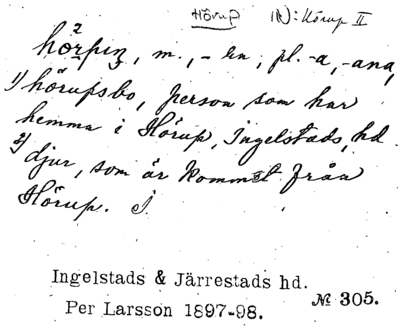 Hörup IN: Hörup II
hö²rpiŋ, m., -en, pl. -a, -ana,
1) hörupsbo, person som har
hemma i Hörup, Ingelstads hd.
2) djur, som är kommet från
Hörup. I.
Ingelstads & Järrestads hd.
Per Larsson 1897-98. № 305.